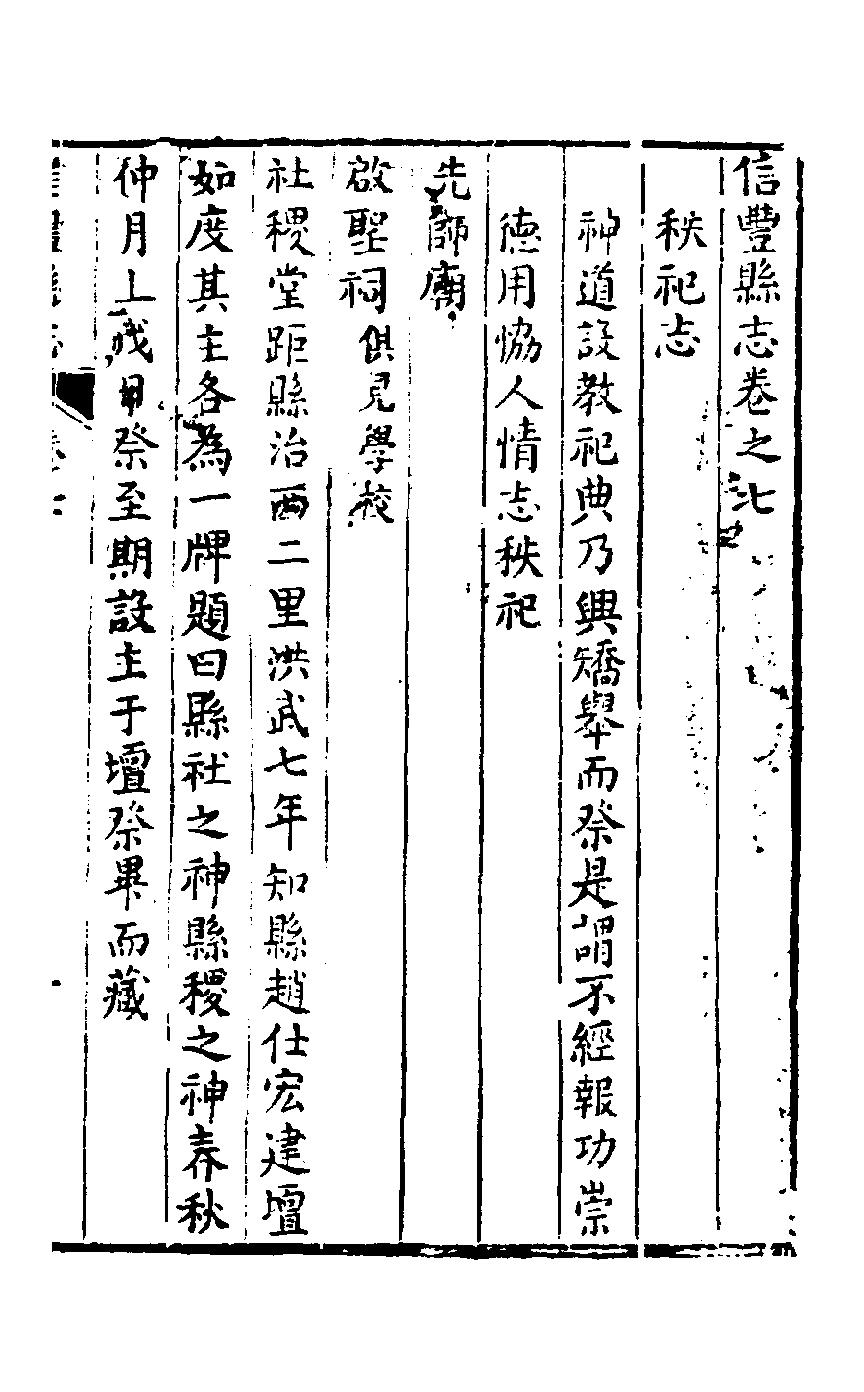 信豐縣志卷之七
秩祀志
神道設教祀典乃興矯舉而祭是謂不經報功崇
德用恊人情志秩祀
先師廟
啟聖祠俱見學校
社稷堂距縣治西二里洪武七年知縣趙仕宏建壇
如度其主各為一牌題曰縣社之神縣稷之神春秋
仲月上戊日祭至期設主于壇祭畢而藏